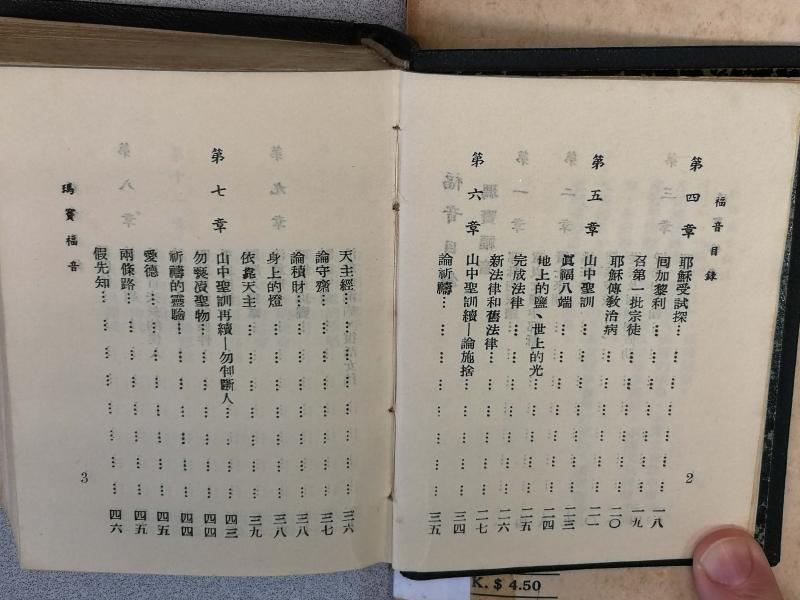 福音目錄
第四章 耶穌受試探…………………一八
囘加黎利…………………一九
召第一批宗徒…………………一九
耶穌傳教治病…………………二〇
第五章 山中聖訓…………………二二
眞福八端…………………二三
地上的鹽、世上的光…………………二四
完成法律…………………二五
新法律和舊法律…………………二六
第六章 山中聖訓續—論施捨…………………三四
論祈禱…………………三五
2
天主經…………………三六
論守齋…………………三七
論積財…………………三八
身上的燈…………………三八
依靠天主…………………三九
第七章 山中聖訓再續—勿判斷人…………………四三
勿褻瀆聖物…………………四四
祈禱的靈驗…………………四四
愛德…………………四五
兩條路…………………四五
假先知…………………四六
瑪竇福音
3
K. $ 4.50